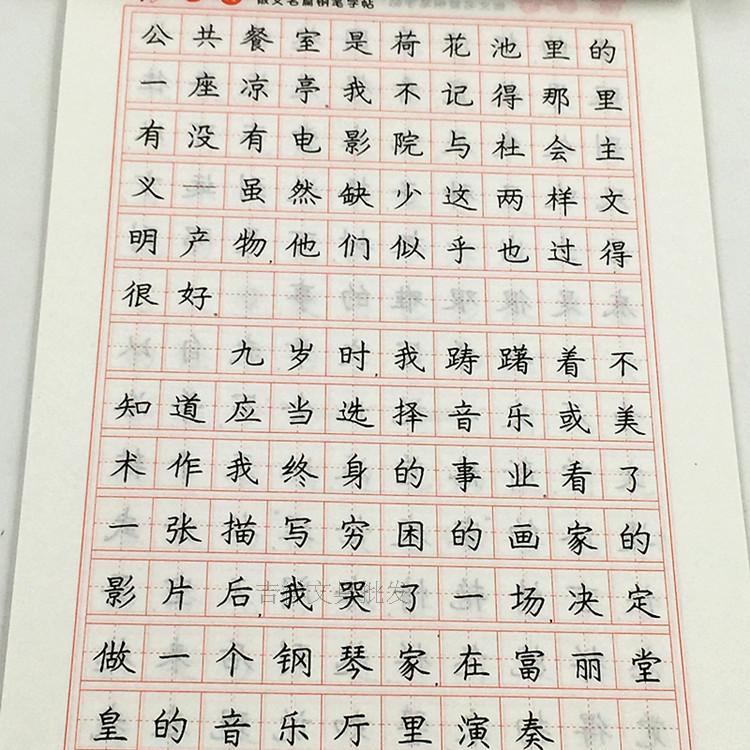 散文名篇钢笔字帖
公共餐室是荷花池里的
一座凉亭我不记得那里
有没有电影院与社会主
义一虽然缺少这两样文
明产物他们似乎也过得
很好
九岁时,我踌躇着不
知道应当选择音乐或美
术作我终身的事业.看了
一张描写穷困的画家的
影片后,我哭了一场,决定
做一个钢琴家,在富丽堂
皇的音乐厅里演奏